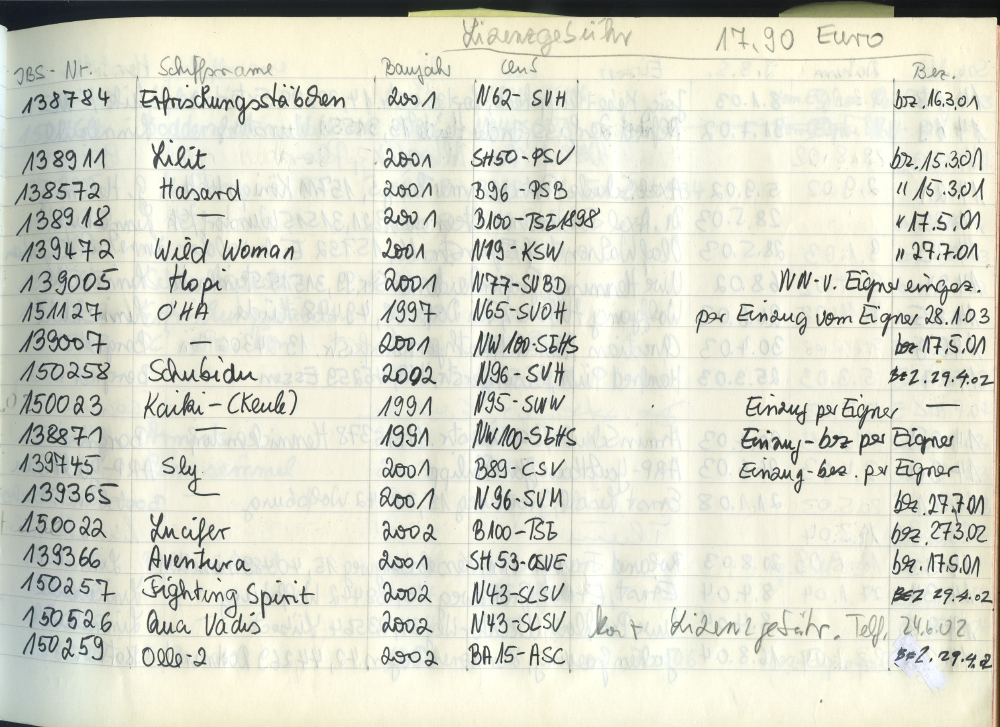 Lizenzgebühr 17,90 Euro
JBS-Nr. Schiffsname Baujahr Bez.
138784 Erfrischungsstäbchen 2001 N62-SVH bz. 16.3.01
138911 Lilit 2001 SH50-PSV bz. 15.3.01
138572 Hasard 2001 B96-PSB " 15.3.01
138918 — 2001 B100-TSE1898 " 17.5.01
139472 Wild Woman 2001 N19-KSW " 27.7.01
139005 Hopi 2001 N77-SVBD v. Eigner eingez.
151127 O'HA 1997 N65-SVOH per Einzug vom Eigner 28.1.03
139007 — 2001 NW100-SEHS bz 17.5.01
150258 Schubidu 2002 N96-SVH BEZ. 29.4.02
150023 Kaiki-(Keule) 1991 N95-SWW Einzug per Eigner —
138871 — 1991 NW100-SEHS Einzug-bez per Eigner
139745 Sly 2001 B89-CSV Einzug-bez. per Eigner
139365 — 2001 N96-SVM bz. 27.7.01
150022 Lucifer 2002 B100-TSE bz. 27.3.02
139366 Aventura 2001 SH53-OSVE bz. 17.5.01
150257 Fighting spirit 2002 N43-SLSV BEZ 29.4.02
150526 Qua Vadis 2002 N43-SLSV Lizenzgebühr. Telf. 24.6.02
150259 Olle-2 2002 BA15-ASC BEZ. 29.4.2